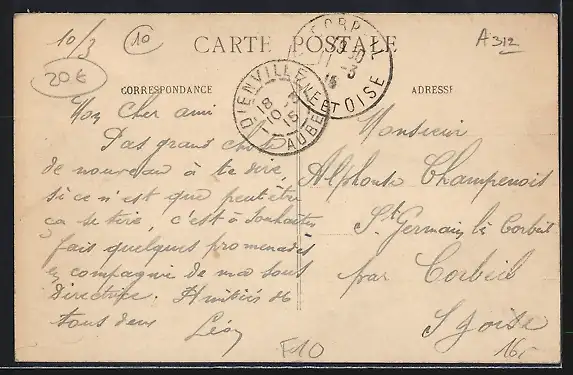 10/3
10
20€
CARTE POSTALE
A 312
CORRESPONDANCE
ADRESSE
DIENVILLE
18
10 3
15
AUBE
CORBEIL
11-3
15
SEINE ET OISE
Mon cher ami
Pas grand chose
de nouveau à te dire,
si ce n'est que peut être
ça se tire, c'est à souhaiter
fais quelques promenades
en compagnie de ma sous
Directrice. Amitiés de
tous deux Léon
Monsieur
Alphonse Champenois
St Germain lè Corbeil
par Corbeil
S & oise
F10
16-